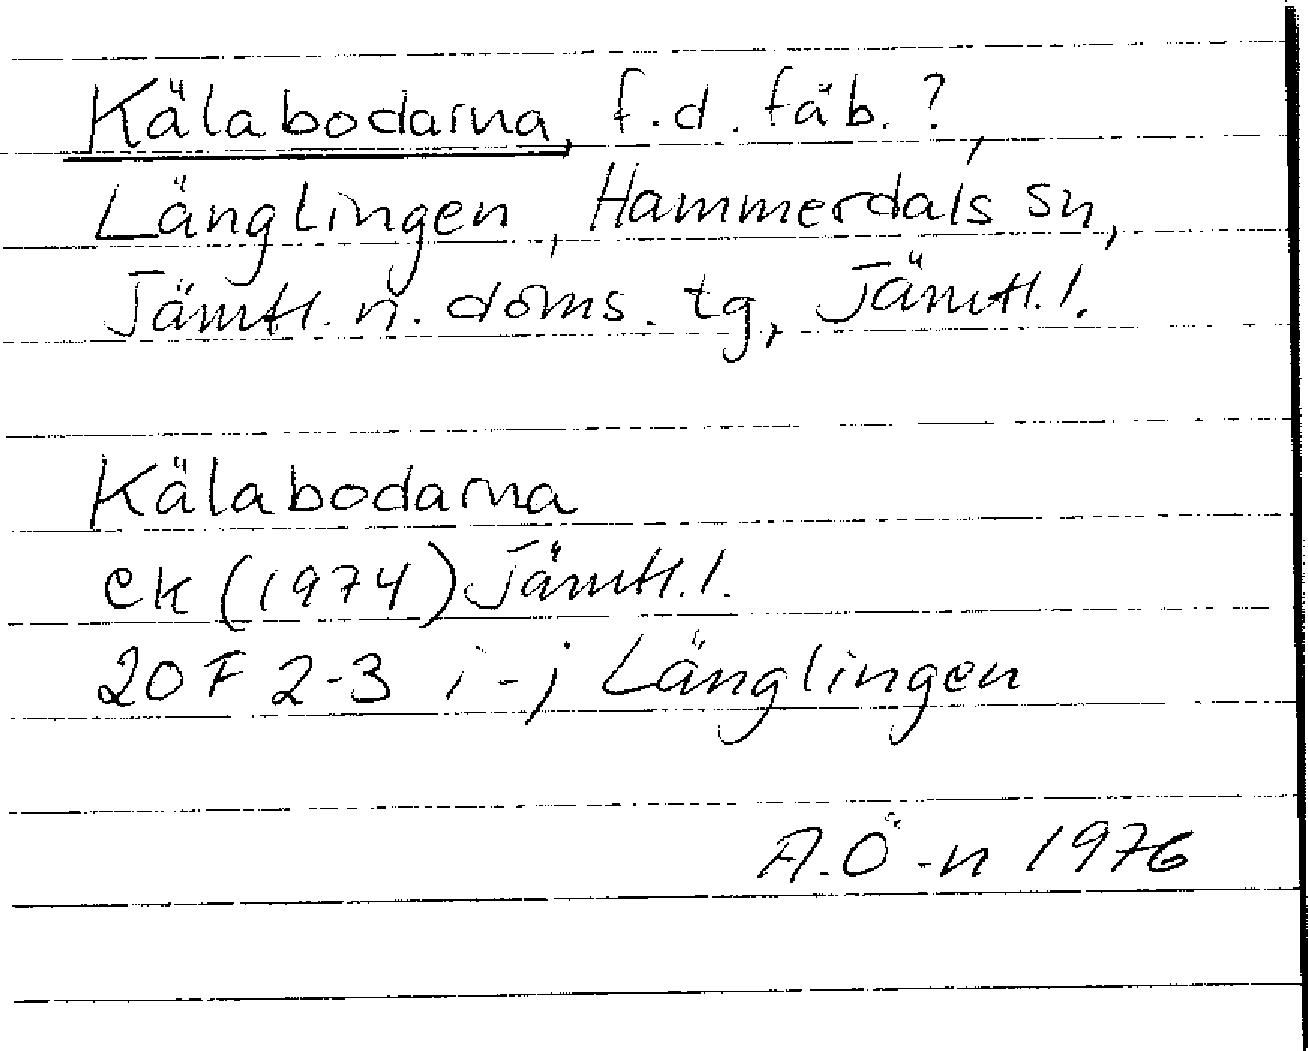 Kälabodarna, f.d. fäb.?,
Länglingen, Hammerdals sn,
Jämtl. n. doms. tg, Jämtl.l.
Kälabodarna
ek (1974) Jämtl.l.
20 F 2-3 i-j Länglingen
A.Ö-n 1976